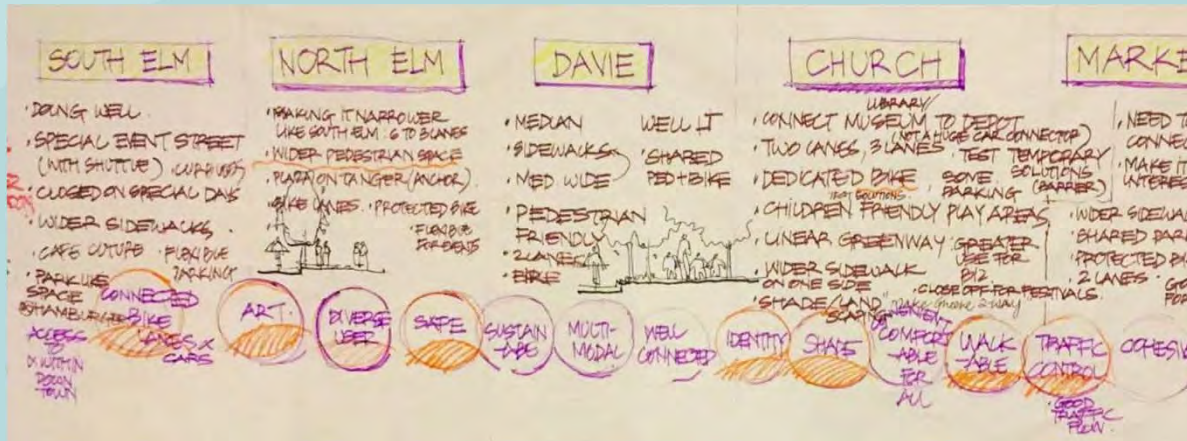 SOUTH ELM
• DOING WELL
• SPECIAL EVENT STREET
(WITH SHUTTLE)
• CLOSED ON SPECIAL DAYS
• WIDER SIDEWALKS.
• CAFE CUTURE • FLEXIBLE
PARKING
• PARK LIKE
SPACE
@HAMBURGER
ACCESS
TO
DOWN
TOWN
NORTH ELM
• MAKING IT NARROWER
LIKE SOUTH ELM: 6 TO 3 LANES
• WIDER PEDESTRIAN SPACE
• PLAZA ON TANGER (ANCHOR).
• BIKE LANES. • PROTECTED BIKE
• FLEXIBLE
FOR EVENTS
DAVIE
• MEDIAN
• SIDEWALKS
• MED WIDE
• PEDESTRIAN
FRIENDLY
• 2 LANES
WELL LIT
• SHARED
PED + BIKE
CHURCH
LIBRARY/
• CONNECT MUSEUM TO DEPOT
(NOT A HUGE CAR CONNECTOR)
• TWO LANES, 3 LANES • TEST TEMPORARY
SOLUTIONS
(BARRIER)
• DEDICATED BIKE
SOME
PARKING
TEST SOLUTIONS
• CHILDREN FRIENDLY PLAY AREAS
• LINEAR GREENWAY
• GREATER
USE FOR
BIZ
• WIDER SIDEWALK
ON ONE SIDE
• CLOSE OFF FOR FESTIVALS.
• SHADE/LAND
SCAPING
• make Greene 2-way
MARKE
• NEED TO
CONNEC
• MAKE IT
INTERES
• WIDER SIDEWAL
• SHARED PAR
• PROTECTED BI
• 2 LANES
• GO
FOR
CONNECTED
BIKE
LANES X
CARS
ART.
DIVERSE
USER
SAFE
SUSTAIN
-ABLE
MULTI-
MODAL
WELL
CONNECTED
IDENTITY
SHADE
CONVENIENT
COMFORT
-ABLE
FOR
ALL
WALK
-ABLE
TRAFFIC
CONTROL
• GOOD
TRAFFIC
FLOW.
COHESIV